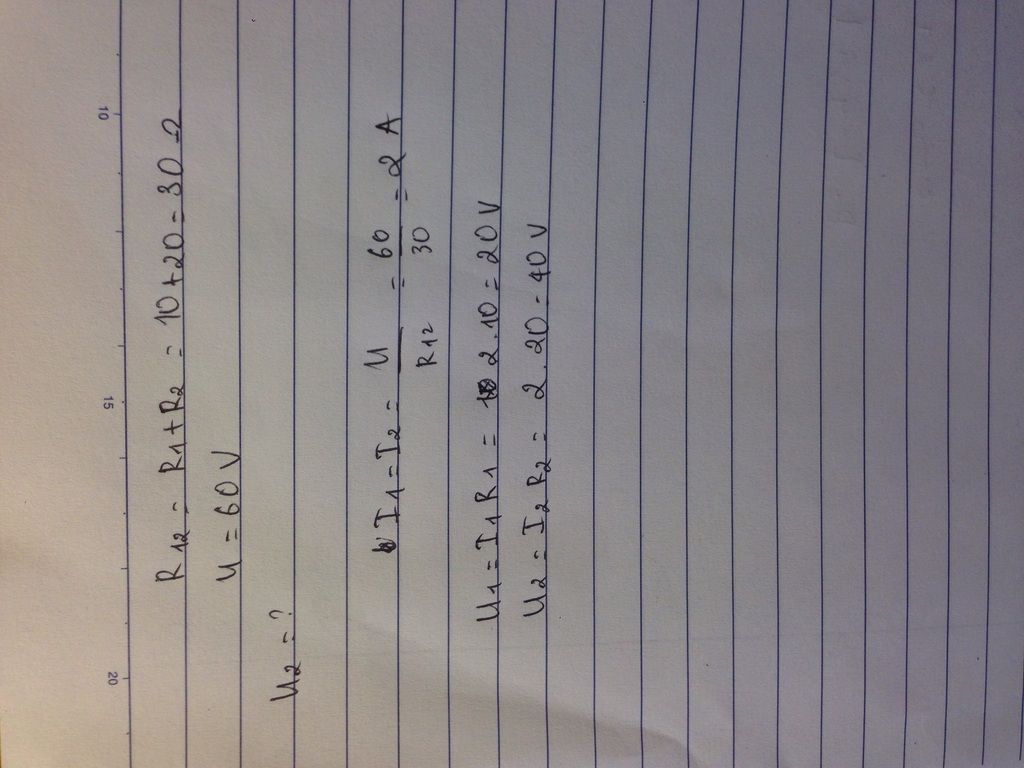 10 15 20
R12 = R1 + R2 = 10 + 20 = 30 Ω
U = 60 V
U2 = ?
I1 = I2 = U / R12 = 60 / 30 = 2 A
U1 = I1 R1 = 2 . 10 = 20 V
U2 = I2 R2 = 2 . 20 = 40 V